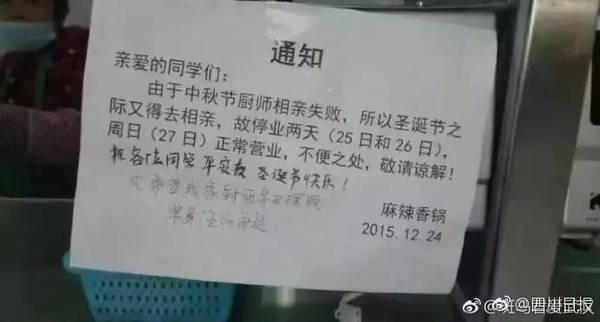 通知
亲爱的同学们：
由于中秋节厨师相亲失败，所以圣诞节之
际又得去相亲，故停业两天（25日和26日），
周日（27日）正常营业，不便之处，敬请谅解！
祝各位同学平安夜 圣诞节快乐！
也希望我家厨师早日摆脱
单身
麻辣香锅
2015.12.24
@四川日报